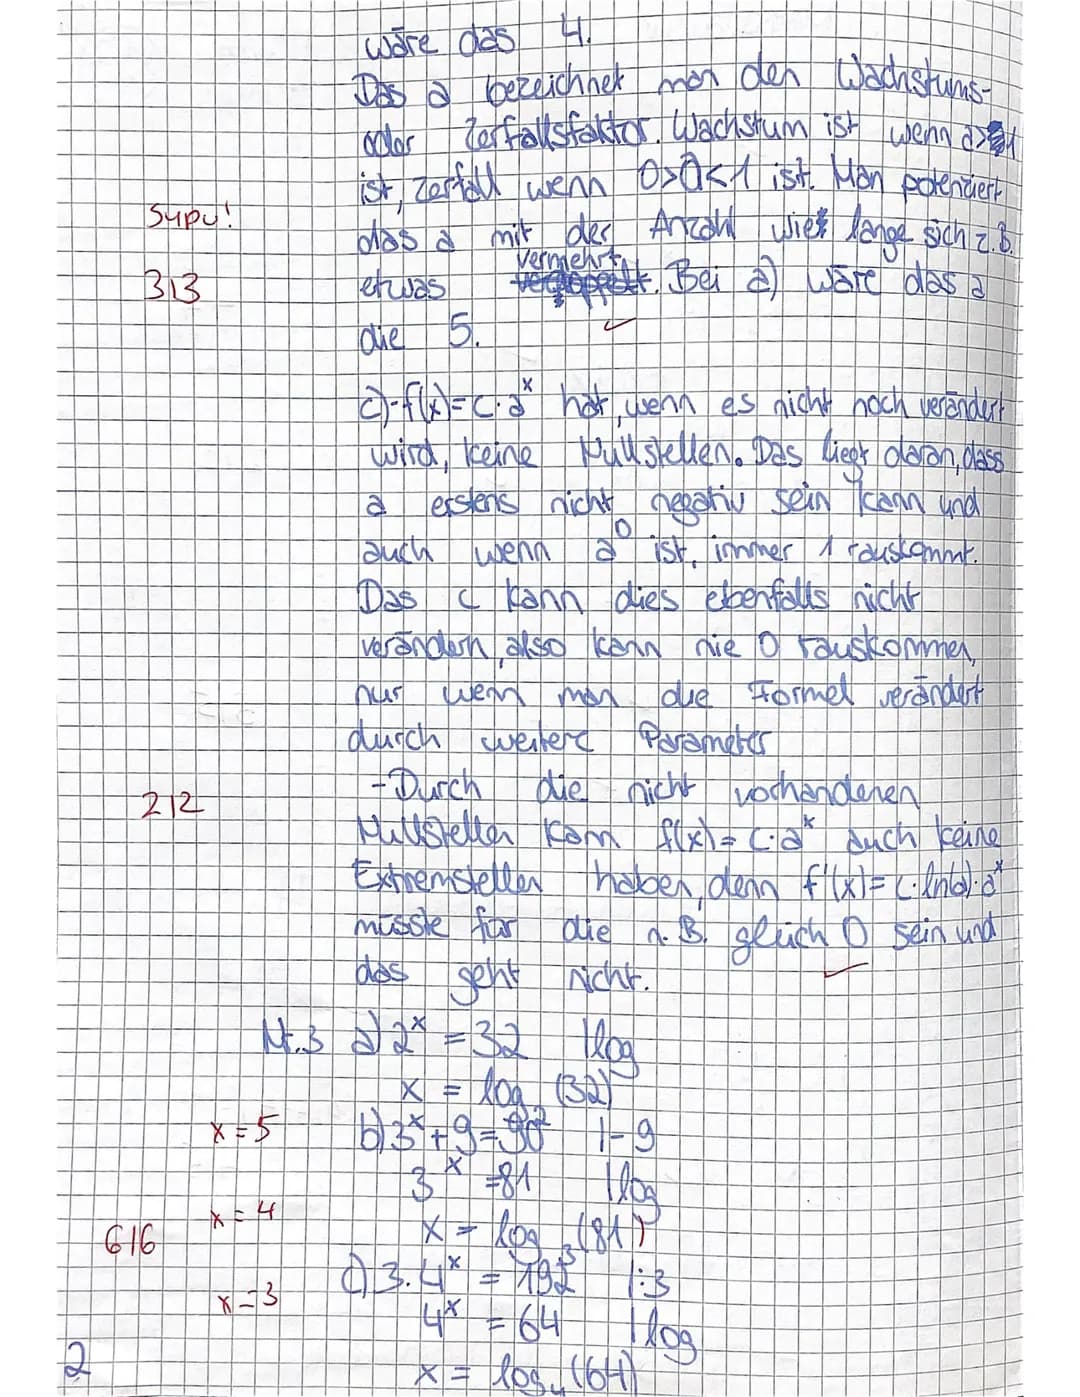 wäre das 4.
Das a bezeichnet man den Wachstums-
oder Zerfallsfaktor. Wachstum ist wenn a>1
ist, Zerfall wenn 0>a<1 ist. Man potenziert
Supu!
das a mit der Anzahl wie lange sich z.B.
vermehrt
313
etwas . Bei a) wäre das a
die 5.
c)-f(x)=c·a^x hat, wenn es nicht noch verändert
wird, keine Nullstellen. Das liegt daran, dass
a erstens nicht negativ sein kann und
auch wenn a^0 ist, immer 1 rauskommt.
Das c kann dies ebenfalls nicht
verändern, also kann nie 0 rauskommen,
nur wenn man die Formel verändert
durch weitere Parameter
-Durch die nicht vorhandenen
212
Nullstellen kann f(x)=c·a^x auch keine
Extremstellen haben, denn f'(x)=c·ln(a)·a^x
müsste für die n.B. gleich 0 sein und
das geht nicht.
Nr.3 a) 2^x = 32 |log
x = log_2 (32)
x=5
b) 3^x+9=90 |-9
3^x =81 |log
x=4
x = log_3 (81)
616
c) 3·4^x = 192 |:3
x=3
4^x = 64 |log
2
x = log_4 (64)